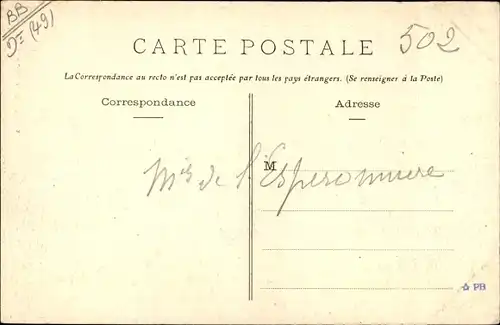 BB
Dt (49)
502
CARTE POSTALE
La Correspondance au recto n'est pas acceptée par tous les pays étrangers. (Se renseigner à la Poste)
Correspondance
Adresse
M
Mis de l'Esperonniere
PB